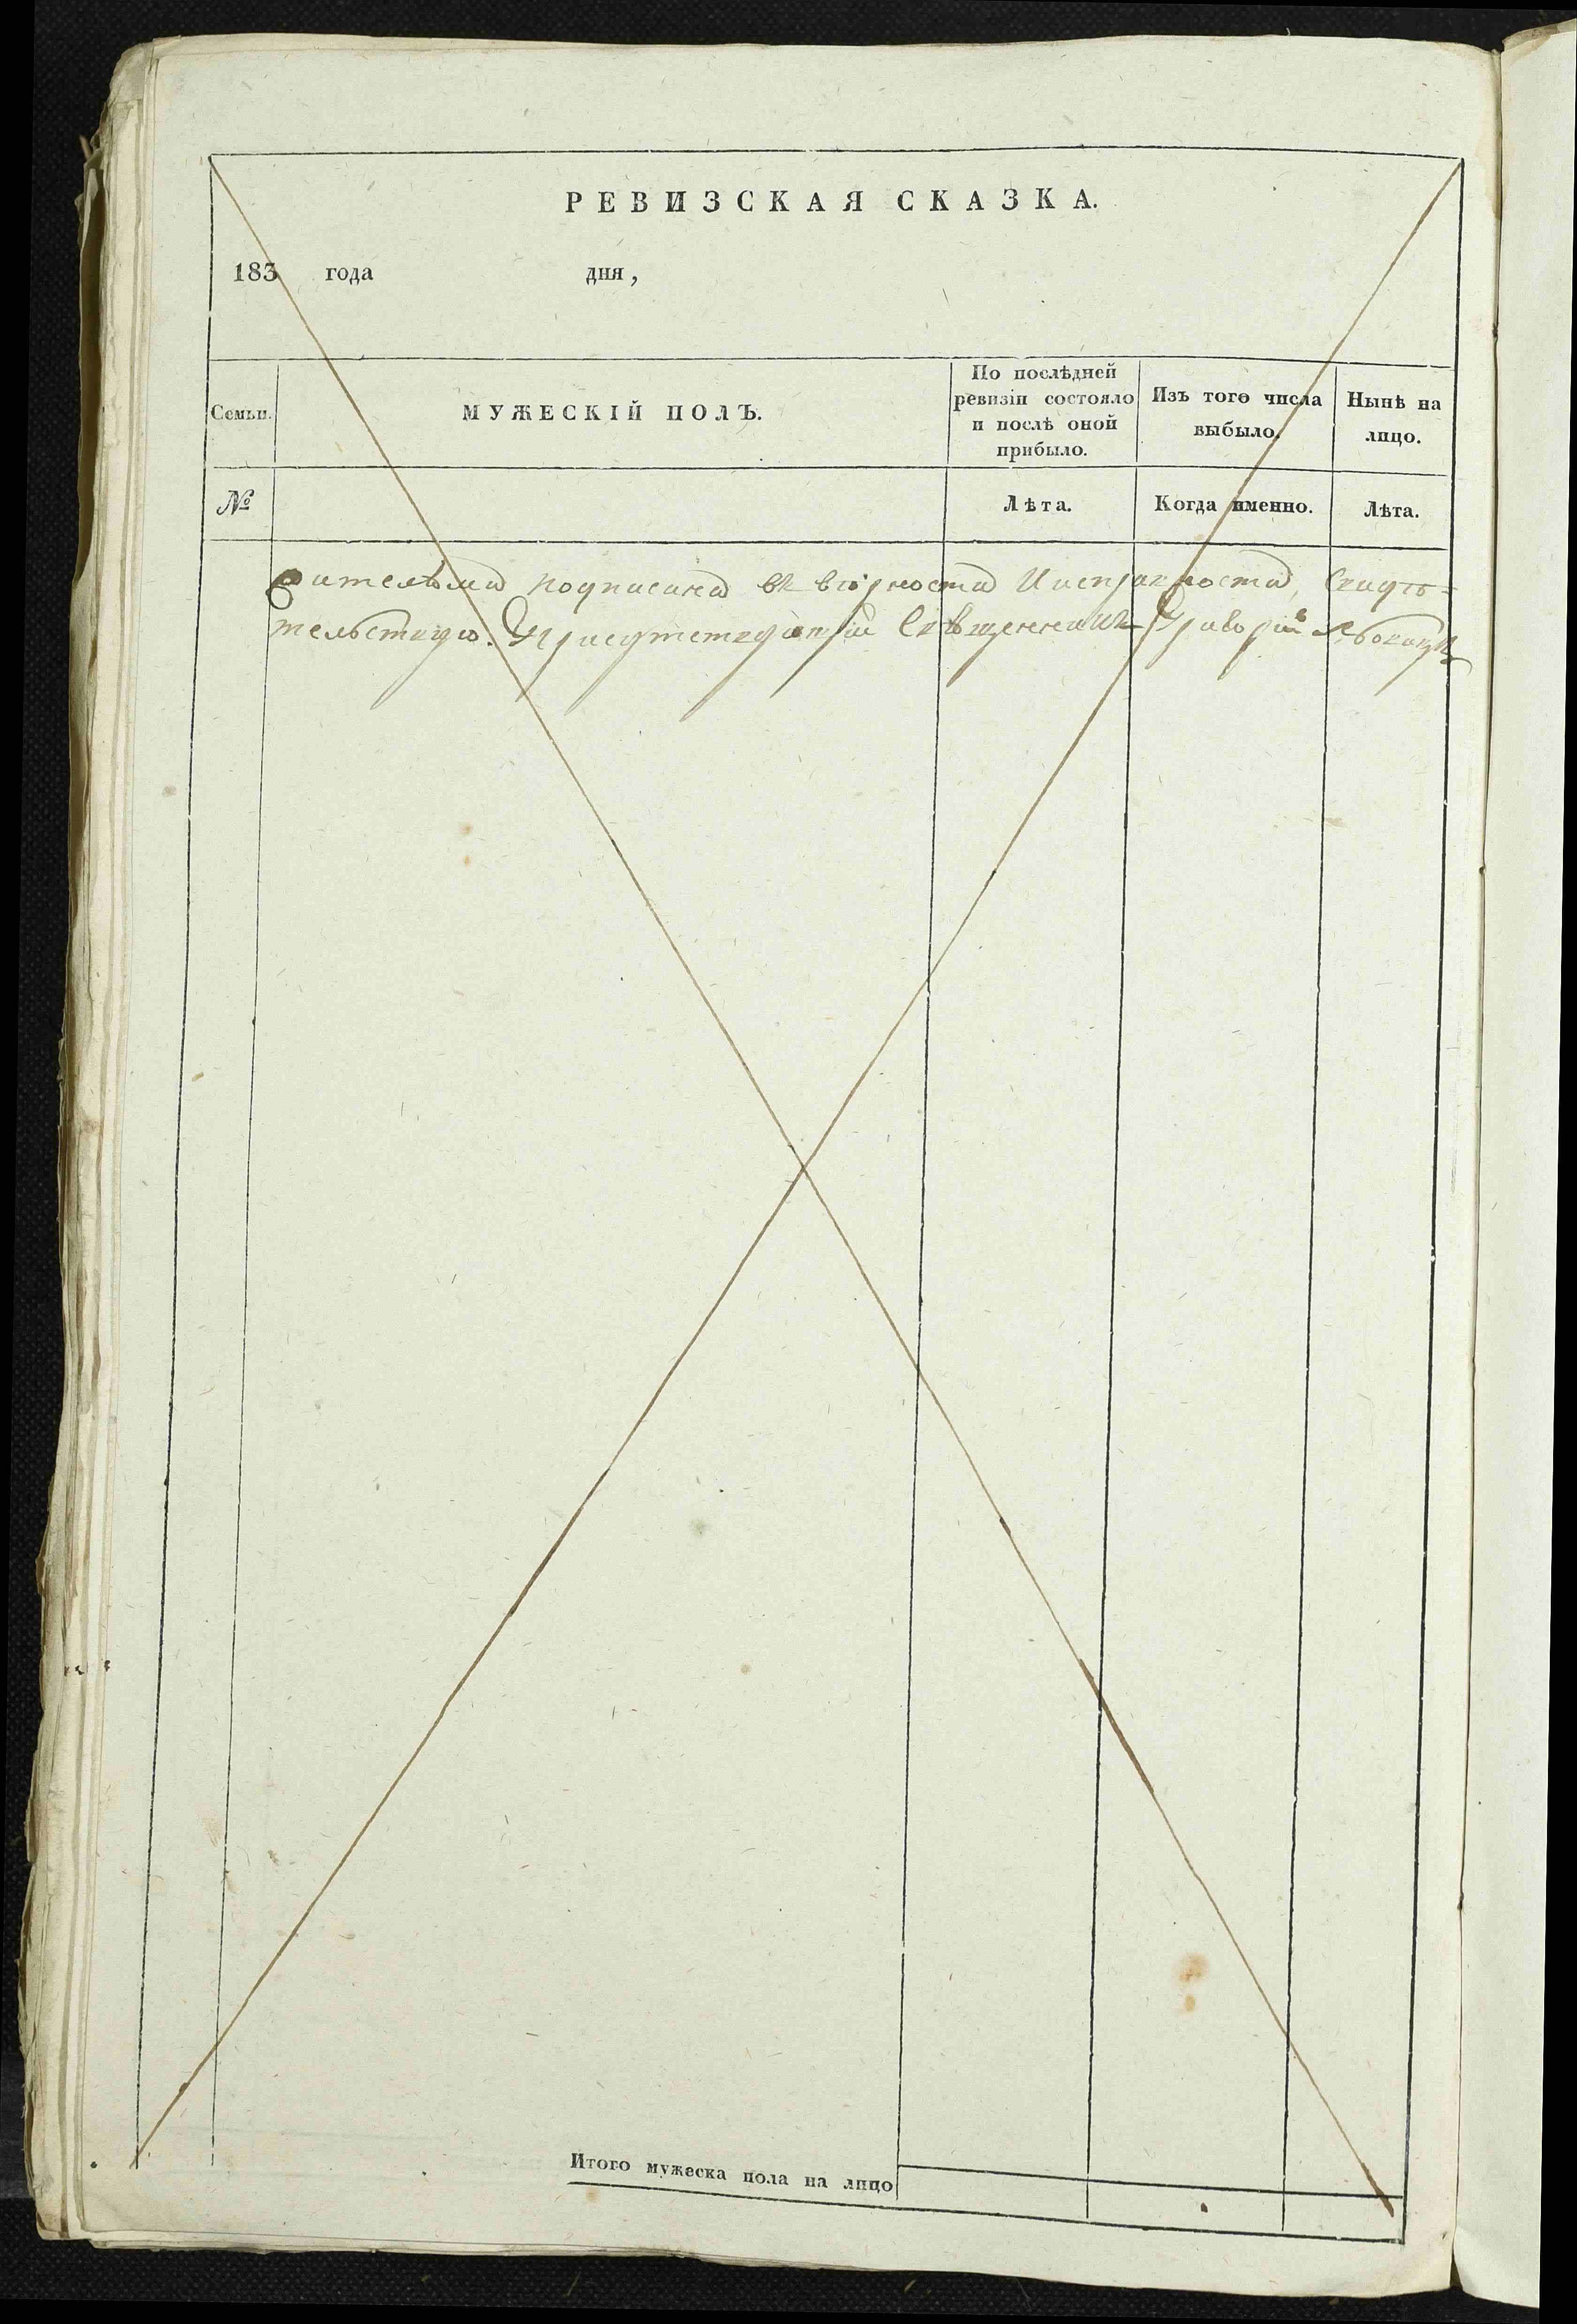 РЕВИЗСКАЯ СКАЗКА.
183 года дня,
Семьи.
МУЖЕСКІЙ ПОЛЪ.
По послѣдней
ревизіи состояло
и послѣ оной
прибыло.
Изъ того числа
выбыло.
Нынѣ на
лицо.
№
Лѣта.
Когда именно.
Лѣта.
жительми подписана въ вѣрности и исправности, свидѣ-
тельствую. Присутствующій Священникъ Григорій
Итого мужеска пола на лицо